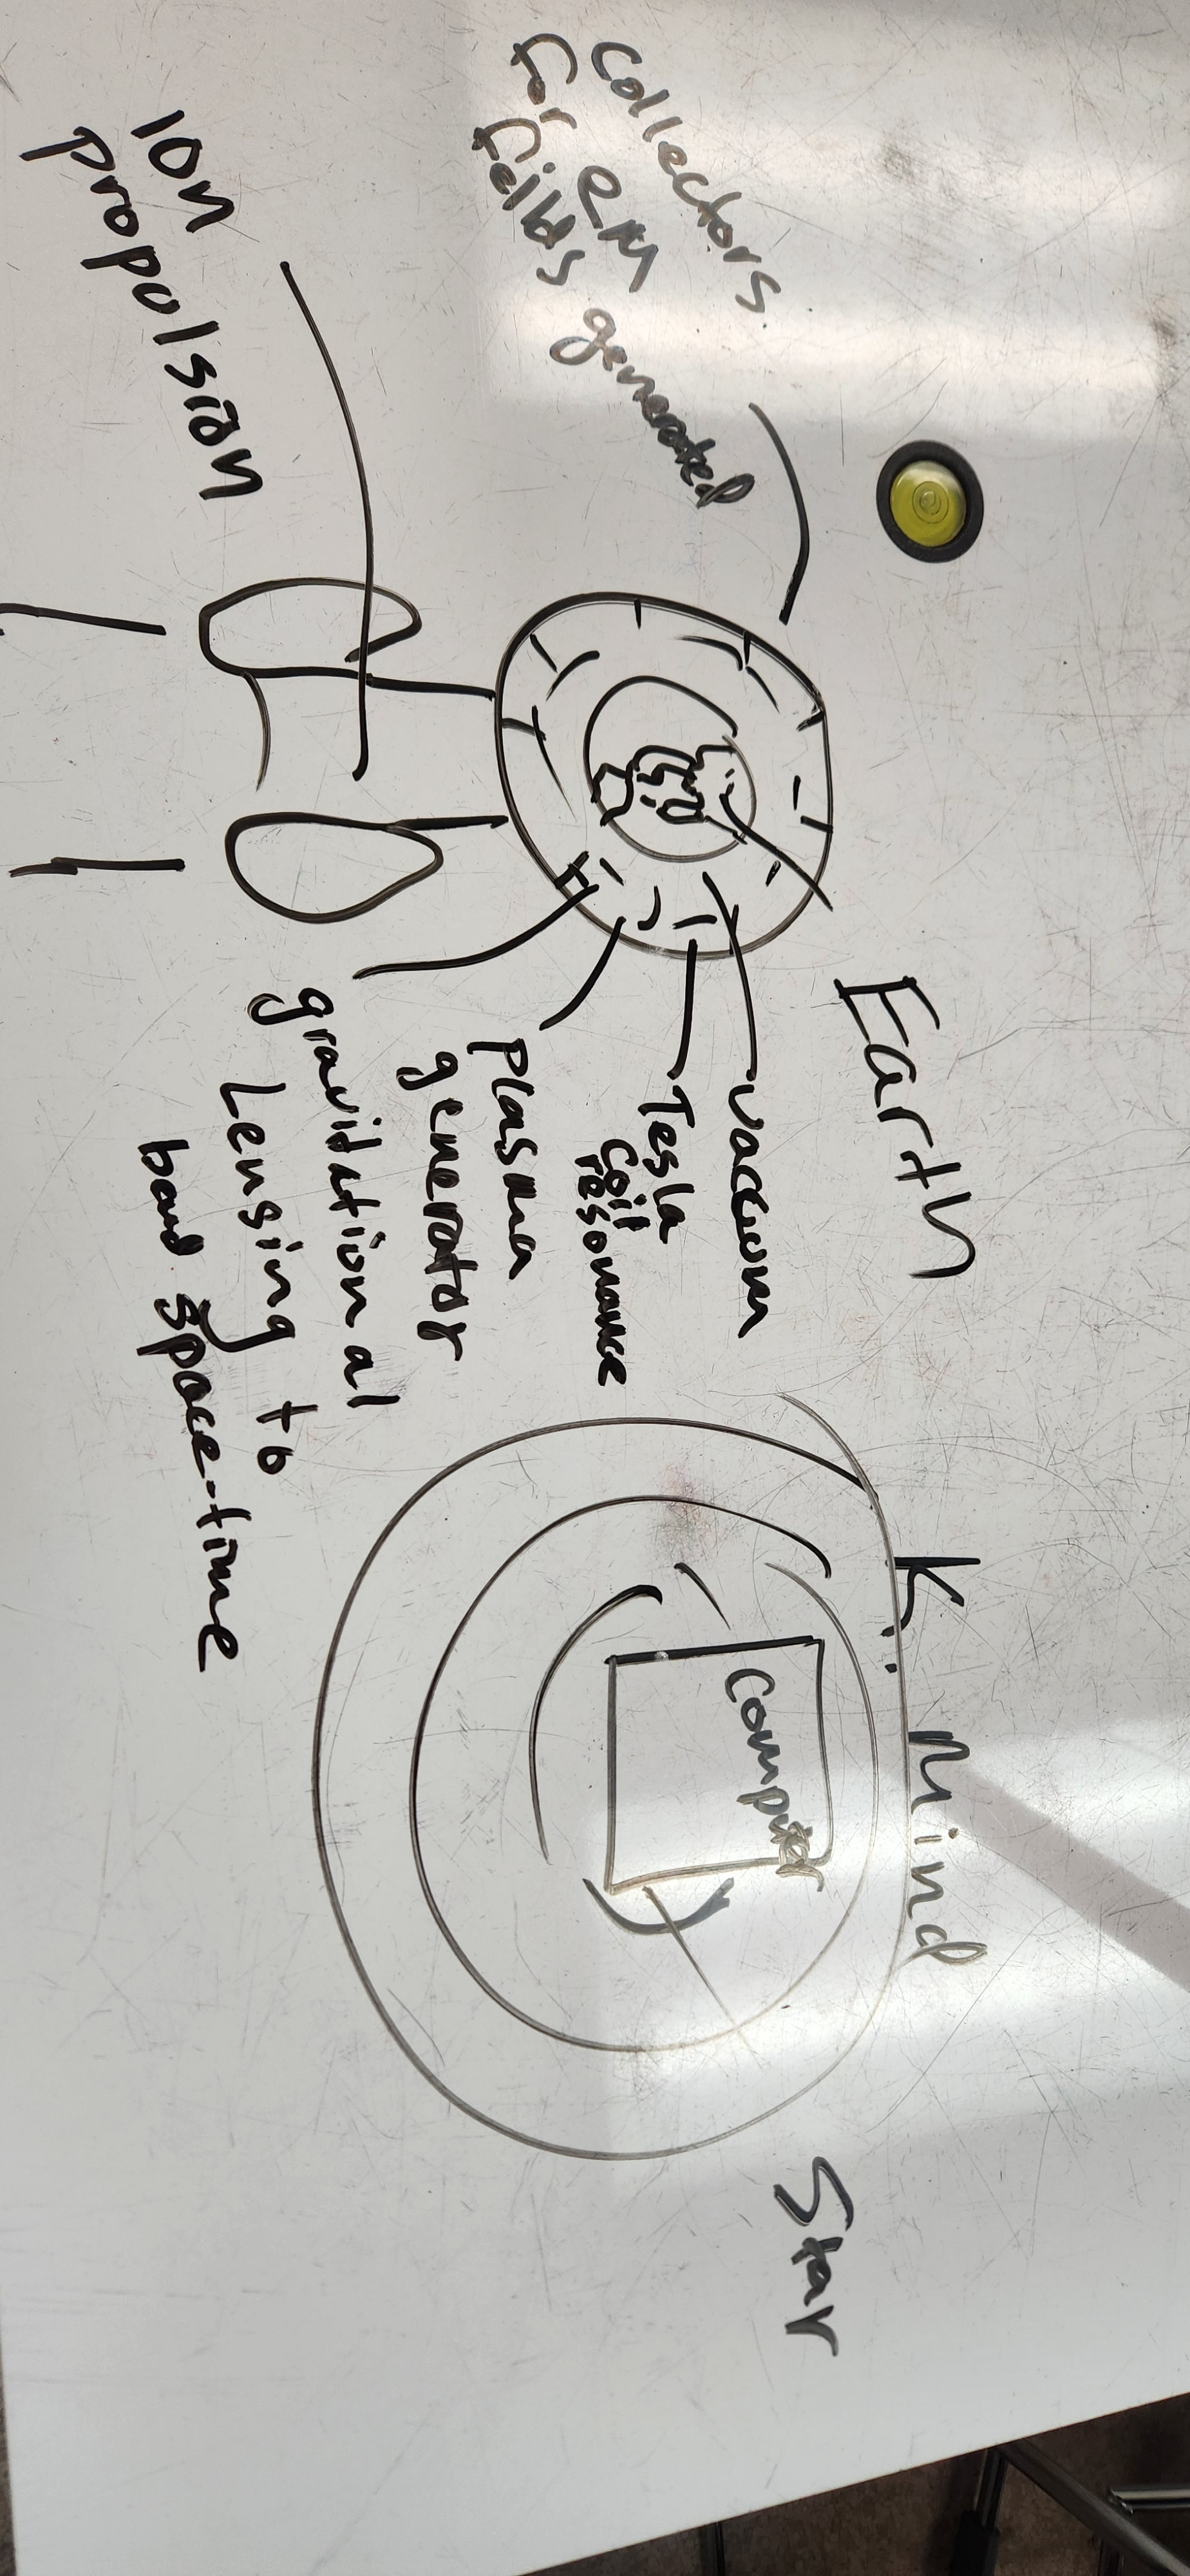 Collectors
For EM
Feilds generated
Ion
Propolsion
Earth
vaccum
Tesla
coil
resonance
Plasma
generator
gravitational
Lensing to
band space-time
K. Mind
Computer
Star